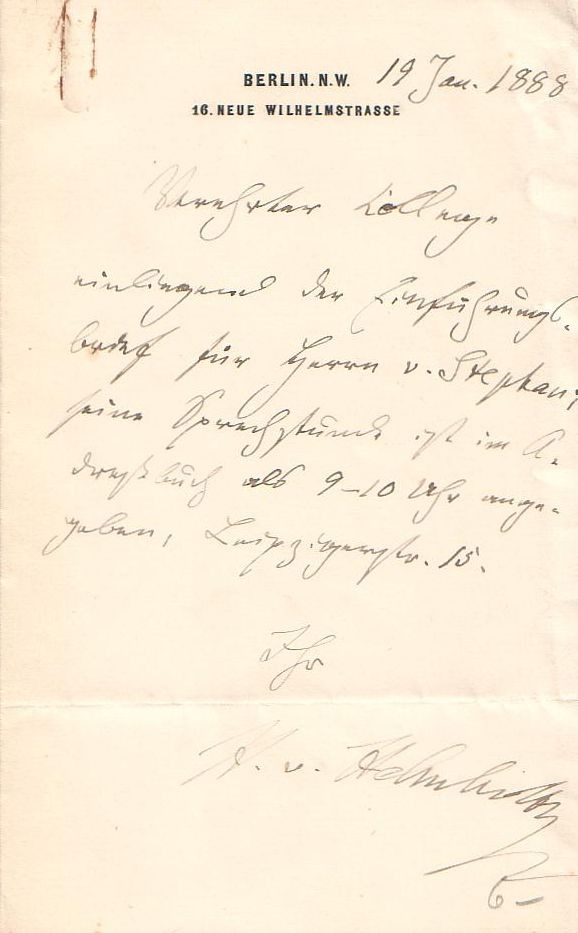 BERLIN.N.W. 19 Jan. 1888
16. NEUE WILHELMSTRASSE
Verehrter College
einliegend der Einführungs-
brief für Herrn v. Stephan;
seine Sprechstunde ist im A-
dreßbuch als 9–10 Uhr ange-
geben, Leipzigerstr. 15.
Ihr
H. v. Helmholtz